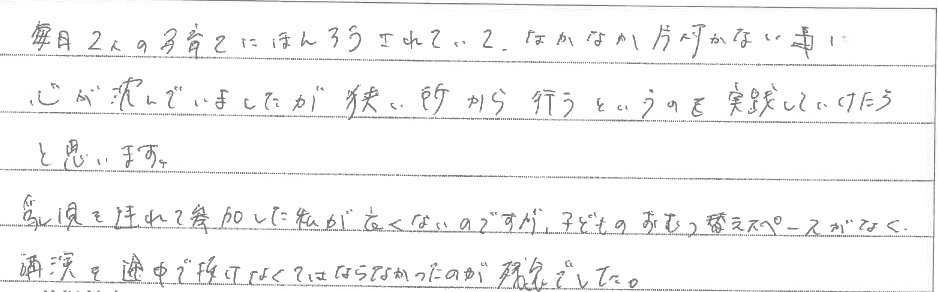 毎日2人の子育てにほんろうされていて、なかなか片付かない事に
心が沈んでいましたが狭い所から行うというのを実践していけたら
と思います。
乳児を連れて参加した私が良くないのですが、子どものおむつ替えスペースがなく、
講演を途中で抜けなくてはならなかったのが残念でした。